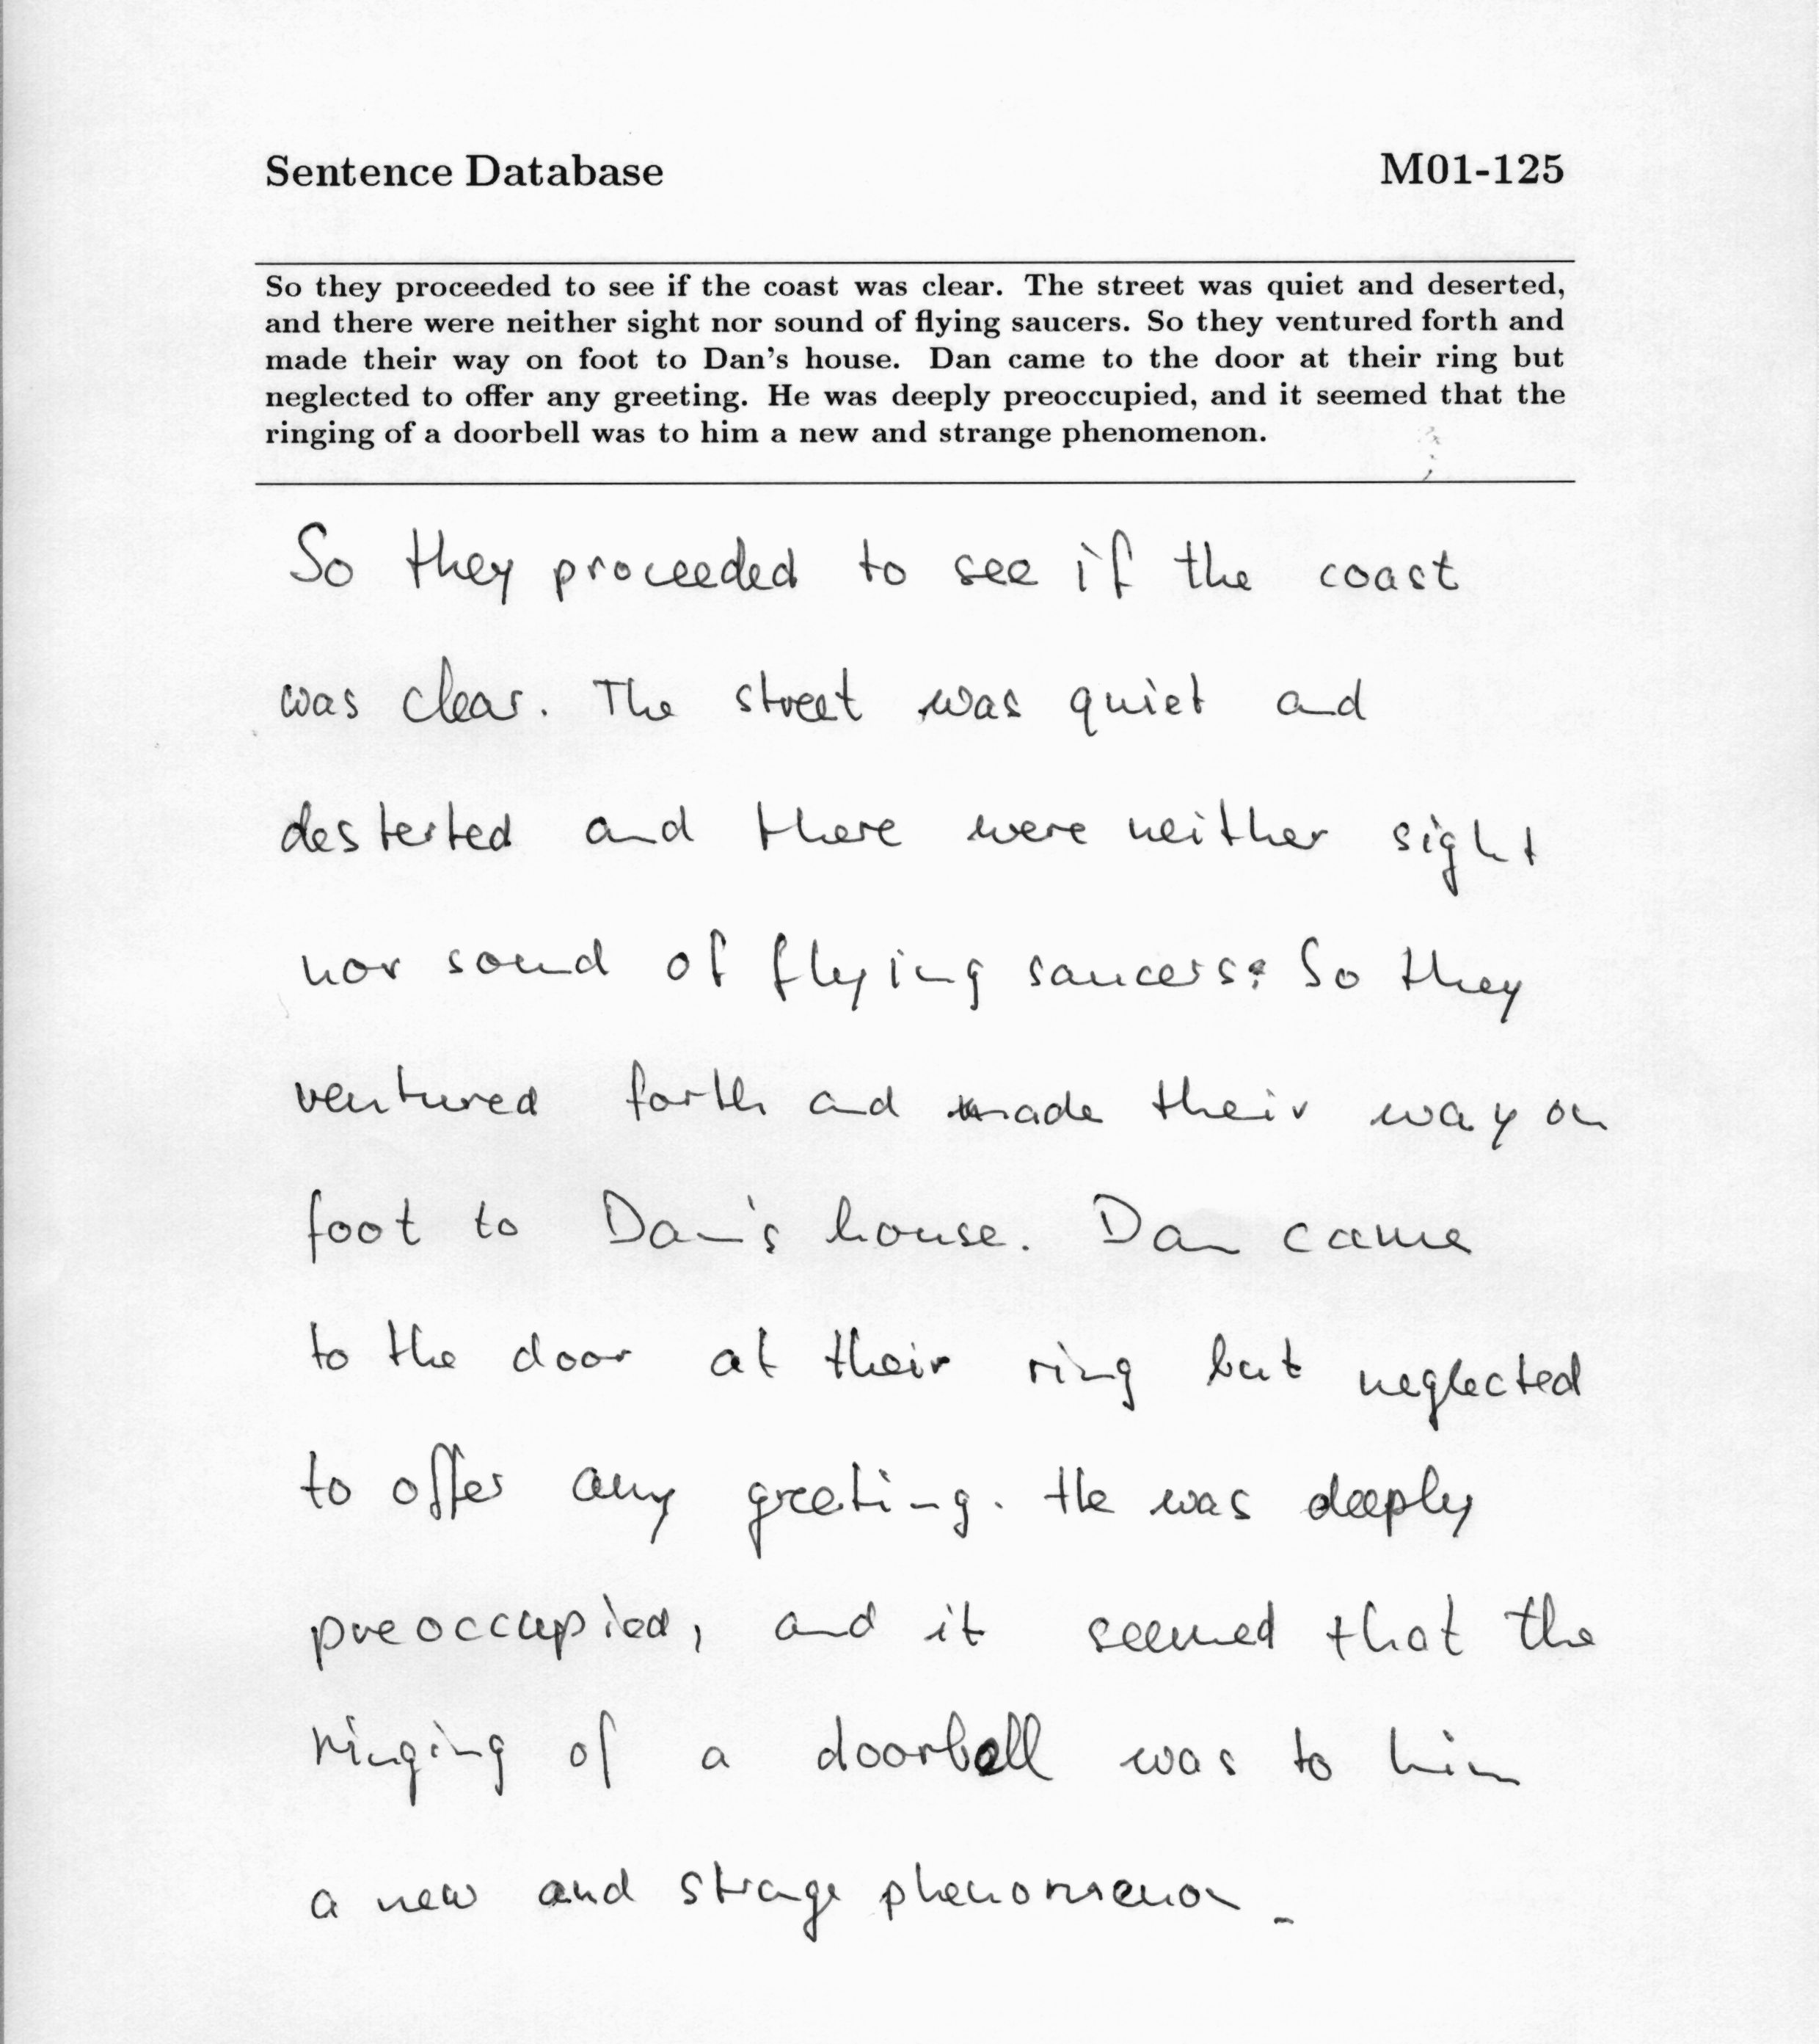 Sentence Database M01-125
So they proceeded to see if the coast was clear. The street was quiet and deserted,
and there were neither sight nor sound of flying saucers. So they ventured forth and
made their way on foot to Dan's house. Dan came to the door at their ring but
neglected to offer any greeting. He was deeply preoccupied, and it seemed that the
ringing of a doorbell was to him a new and strange phenomenon.
So they proceeded to see if the coast
was clear. The street was quiet and
desterted and there were neither sight
nor sound of flying saucers. So they
ventured forth and made their way on
foot to Dan's house. Dan came
to the door at their ring but neglected
to offer any greeting. He was deeply
preoccupied, and it seemed that the
ringing of a doorbell was to him
a new and strange phenomenon.